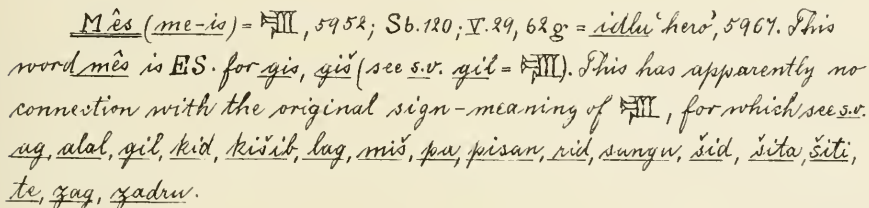 Mês (me-is) = 𒈩, 5952; Sb. 120; V. 29, 62g = idlu 'hero', 5967. This
word mês is ES. for gis, giš (see s.v. gil = 𒈩). This has apparently no
connection with the original sign-meaning of 𒈩, for which see s.v.
ag, alal, gil, kid, kišib, lag, miš, pa, pisan, rid, sangu, šid, šita, šiti,
te, zag, zadru.